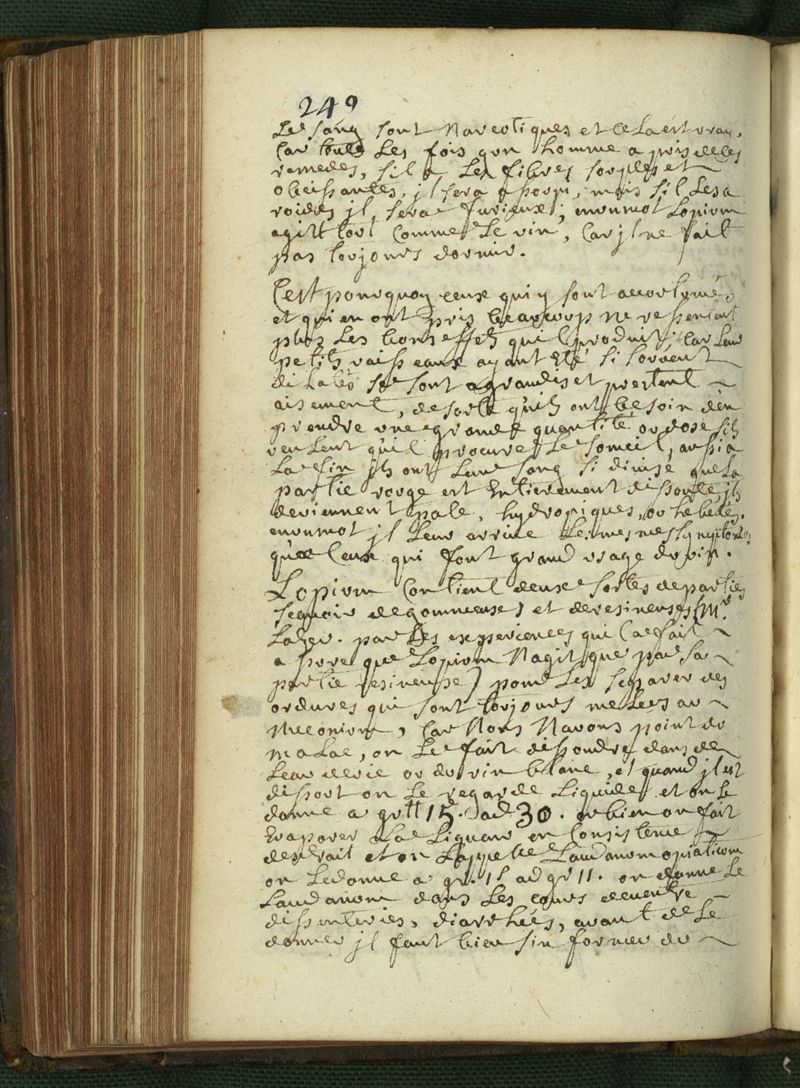 249
Le sang sont Narcotiques et Cela est vray,
Car toutes Les fois qun homme a pris de ces
remedes, sil a Les fibres souples et
obeissantes, jl sera assoupi, mais sil Les a
roides jl sera furieux; en un mot Lopium
agit tout Comme Le vin, Car jl ne fait
pas toujours dormir.
Cest pourquoy ceux qui y sont accoutumés
et qui en ont pris beaucoup ne ressentent
plus Les bons effets quil produit; Car Leur
petits vaisseaux ayant Eté si souvent
dilatés se sont agrandis et pretent
aisement, de sorte quils ont besoin den
prendre une grande quantité ou dose sils
veulent quil procure Le someil, aussi a
La fin jls ont Leur sang si divisé que La
partie rouge est Entierement dissoute, jls
deviennent pale, hydropiques, ou hebetés.
en un mot jl Leur arrive Les mesmes symptomes
qua Ceux qui font grand usage du vin.
Lopium Contient deux sortes de parties
scavoir de gommeuses et de resineuses (Mr
par des experiences qui La fait
que Lopium Nagit que par sa
partie resineuse) pour Les separer des
ordures qui sont toujours meslees au
Meconium, Car Nous Navons point du
on Le fait dissoudre dans de
Leau de vie ou du vin blanc, et quand jl est
dissout on Le regarde Liquide et on Le
donne a gutt 15. ad 30. ou bien on fait
Evaporer La Liqueur en Consistence
dextrait et on Lappelle Laudanum opiaticum
on Le donne a gr. 1/2 ad gr 11. on donne Le
Laudanum dans Les cours de ventre
dissenteries, diarrhées, avant de Le
donner jl faut bien sinformer du